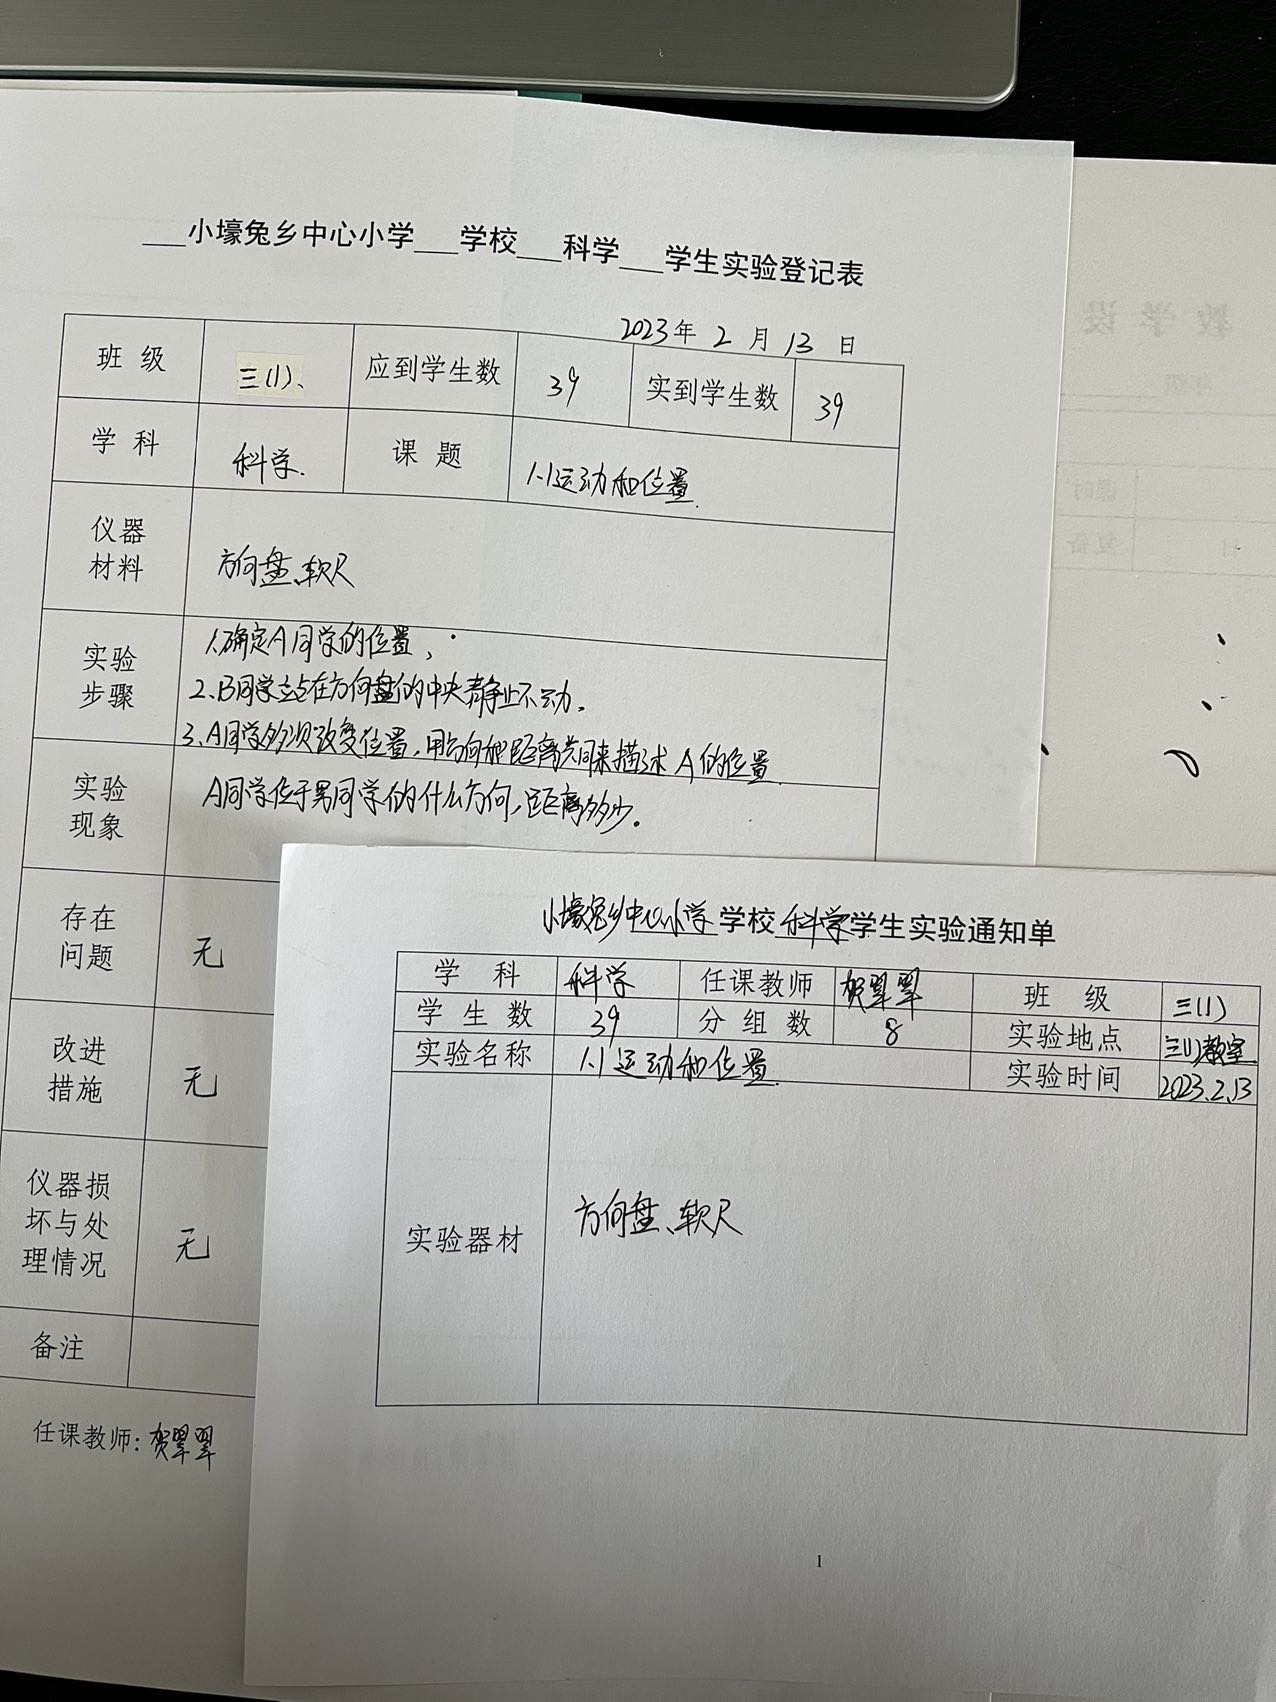 ___小壕兔乡中心小学___学校___科学___学生实验登记表
2023年 2 月 13 日
班级 三(1)、 应到学生数 39 实到学生数 39
学科 科学. 课题 1.1运动和位置.
仪器
材料
方向盘、软尺
实验
步骤
1.确定A同学的位置,
2.B同学立占在方向盘的中央静止不动.
3.A同学多次改变位置,用方向和距离共同来描述A的位置.
实验
现象
A同学位于男同学的什么方向,距离多少.
存在
问题
无
改进
措施
无
仪器损
坏与处
理情况
无
备注
任课教师:贺翠翠
小壕兔乡中心小学学校科学学生实验通知单
学科 科学 任课教师 贺翠翠 班级 三(1)
学生数 39 分组数 8 实验地点 三(1)教室
实验名称 1.1运动和位置. 实验时间 2023.2.13
实验器材 方向盘、软尺
1
教学设
年级
课时
复备